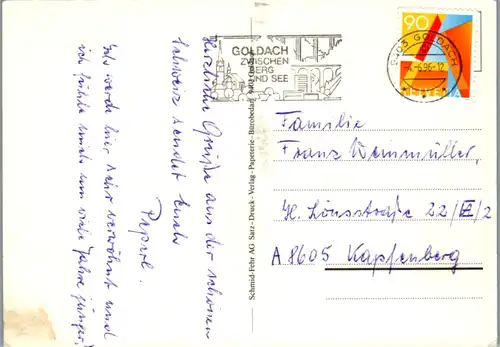 Herzliche Grüße aus der schönen
Schweiz sendet Euch
Pepperl.
Ich werde hier sehr verwöhnt und
ich fühle mich um viele Jahre jünger!
Schmid-Fehr AG Satz - Druck - Verlag - Papeterie - Bürobedarf
GOLDACH
ZWISCHEN
BERG
UND SEE
9403 GOLDACH
96-12
90
HELVETIA
Familie
Franz Weinmüller,
H. Lönsstraße 22/VI/2
A 8605 Kapfenberg